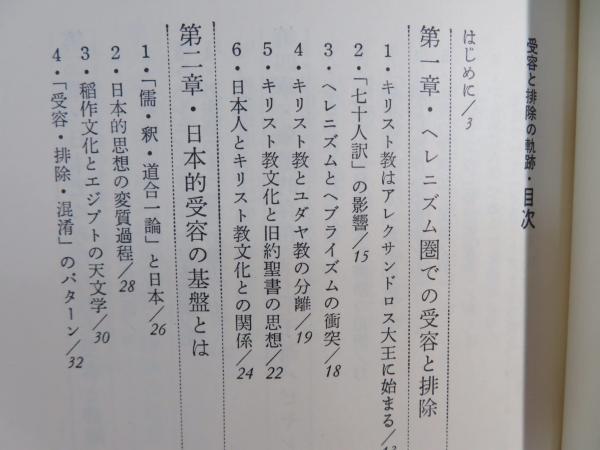 受容と排除の軌跡・目次
はじめに/3
第一章・ヘレニズム圏での受容と排除
1・キリスト教はアレクサンドロス大王に始まる/13
2・「七十人訳」の影響/15
3・ヘレニズムとヘブライズムの衝突/18
4・キリスト教とユダヤ教の分離/19
5・キリスト教文化と旧約聖書の思想/22
6・日本人とキリスト教文化との関係/24
第二章・日本的受容の基盤とは
1・「儒・釈・道合一論」と日本/26
2・日本的思想の変質過程/28
3・稲作文化とエジプトの天文学/30
4・「受容・排除・混淆」のパターン/32